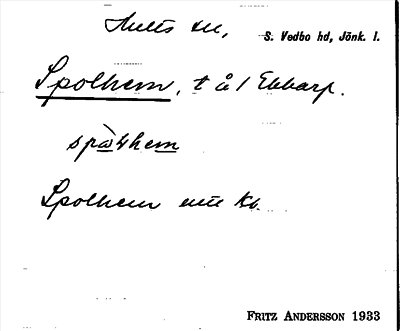 Hults sn, S. Vedbo hd, Jönk. l.
Spolhem, t å 1 Ekkarp.
spὰɬhem
Spolhem enl Kb.
FRITZ ANDERSSON 1933